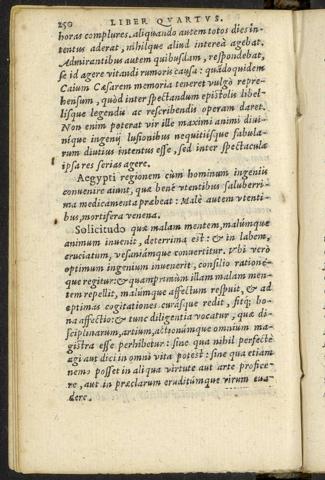 250 LIBER QVARTVS.
horas complures. aliquando autem totos dies in-
tentus aderat, nihilque aliud intereà agebat.
Admirantibus autem quibusdam, respondebat,
se id agere vitandi rumoris causa: quãdoquidem
Caium Cæsarem memoria teneret vulgò repre-
hensum, quòd inter spectandum epistolis libel-
lisque legendis ac rescribendis operam daret.
Non enim poterat vir ille maximi animi diui-
nique ingenij lusionibus nequitijsque fabula-
rum diutius intentus esse, sed inter spectacula
ipsa res serias agere.
Aegypti regionem cùm hominum ingenijs
conuenire aiunt, quæ benè vtentibus saluberri-
ma medicamenta præbeat: Malè autem vtenti-
bus, mortifera venena.
Solicitudo quæ malam mentem, malúmque
animum inuenit, deterrima est: & in labem,
cruciatum, vesaniámque conuertitur. Vbi verò
optimum ingenium inuenerit, consilio rationé-
que regitur: & quamprimùm illam malam men-
tem repellit, malúmque affectum respuit, & ad
optimas cogitationes curásque redit, fitq; bo-
na affectio: & tunc diligentia vocatur, quæ di-
sciplinarum, artium, actionúmque omnium ma-
gistra esse perhibetur: sine qua nihil perfectè
agi aut dici in omni vita potest: sine qua etiam
nemo posset in aliqua virtute aut arte profice-
re, aut in præclarum eruditúmque virum eua-
dere.